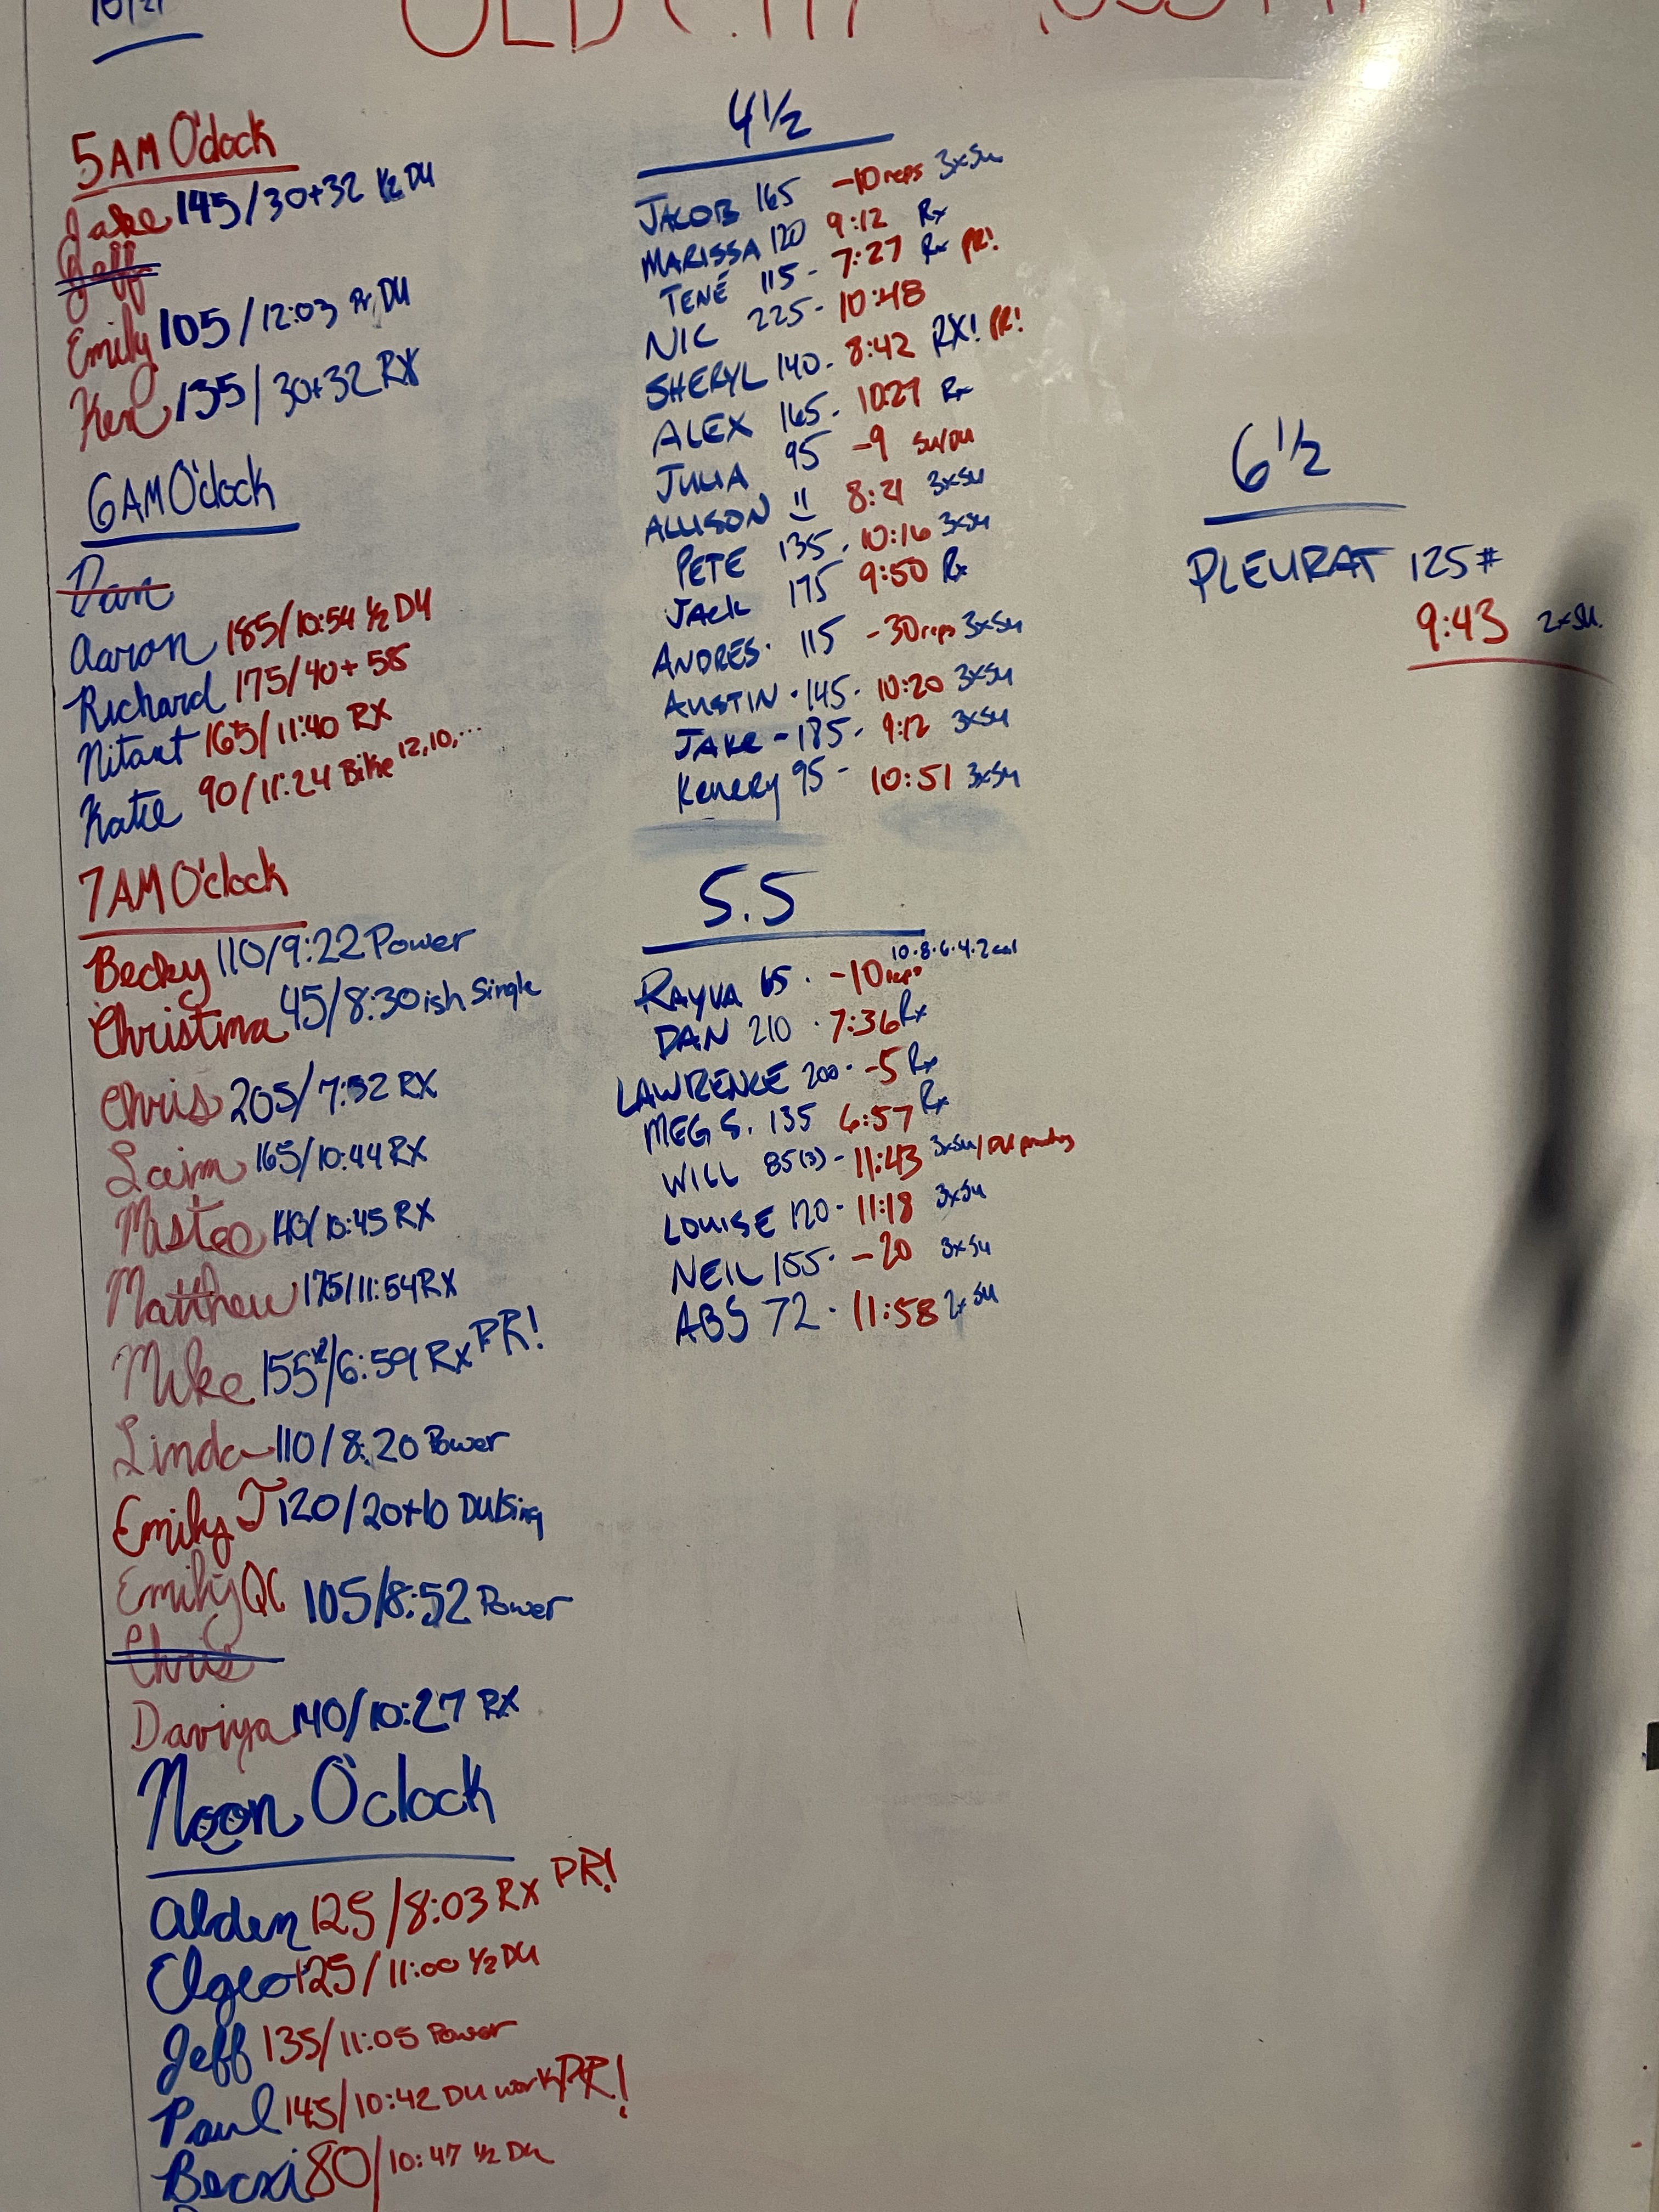 10/21
OLD CITY CROSSFIT
5AM O'clock
Jake 145/30+32 ½ DU
Jeff
Emily 105/12:03 Pr, DU
Ken 135/30+32 RX
6AM O'clock
Dan
Aaron 185/10:54 ½ DU
Richard 175/40+58
Nitant 165/11:40 RX
Katie 90/11:24 Bike 12,10,...
7AM O'clock
Becky 110/9:22 Power
Christina 45/8:30ish Single
Chris 205/7:52 RX
Laim 165/10:44 RX
Mateo 140/10:45 RX
Matthew 175/11:54 RX
Mike 155#/6:59 Rx PR!
Linda 110/8:20 Power
Emily J 120/20+10 DU/Sing
Emily QC 105/8:52 Power
Chris
Daviya 140/10:27 RX
Noon O'clock
Alden 125/8:03 Rx PR!
Elgeo 125/11:00 ½ DU
Jeff 135/11:05 Power
Paul 145/10:42 DU work PR!
Becxi 80/10:47 ½ Du
4 ½
JACOB 165 -10 reps 3xSu
MARISSA 120 9:12 Rx
TENÉ 115 - 7:27 Rx PR!
NIC 225 - 10:48
SHERYL 140 - 8:42 RX! PR!
ALEX 165 - 10:27 Rx
JULIA 95 -9 Su/DU
ALLISON " 8:21 3xSu
PETE 135 - 10:16 3xSu
JACK 175 9:50 Rx
ANDRES · 115 -30 reps 3xSu
AUSTIN · 145 - 10:20 3xSu
JAKE - 185 - 9:12 3xSu
KENERY 95 - 10:51 3xSu
5.5
RAYVA 65 · -10 reps 10·8·6·4·2 cal
DAN 210 · 7:36 Rx
LAWRENCE 200 · -5 Rx
MEG S. 135 6:57 Rx
WILL 85(3) - 11:43 3xSu/
LOUISE 120 - 11:18 3xSu
NEIL 155 · -20 3xSu
ABS 72 · 11:58 2xSu
6 ½
PLEURAT 125#
9:43 2xSu.